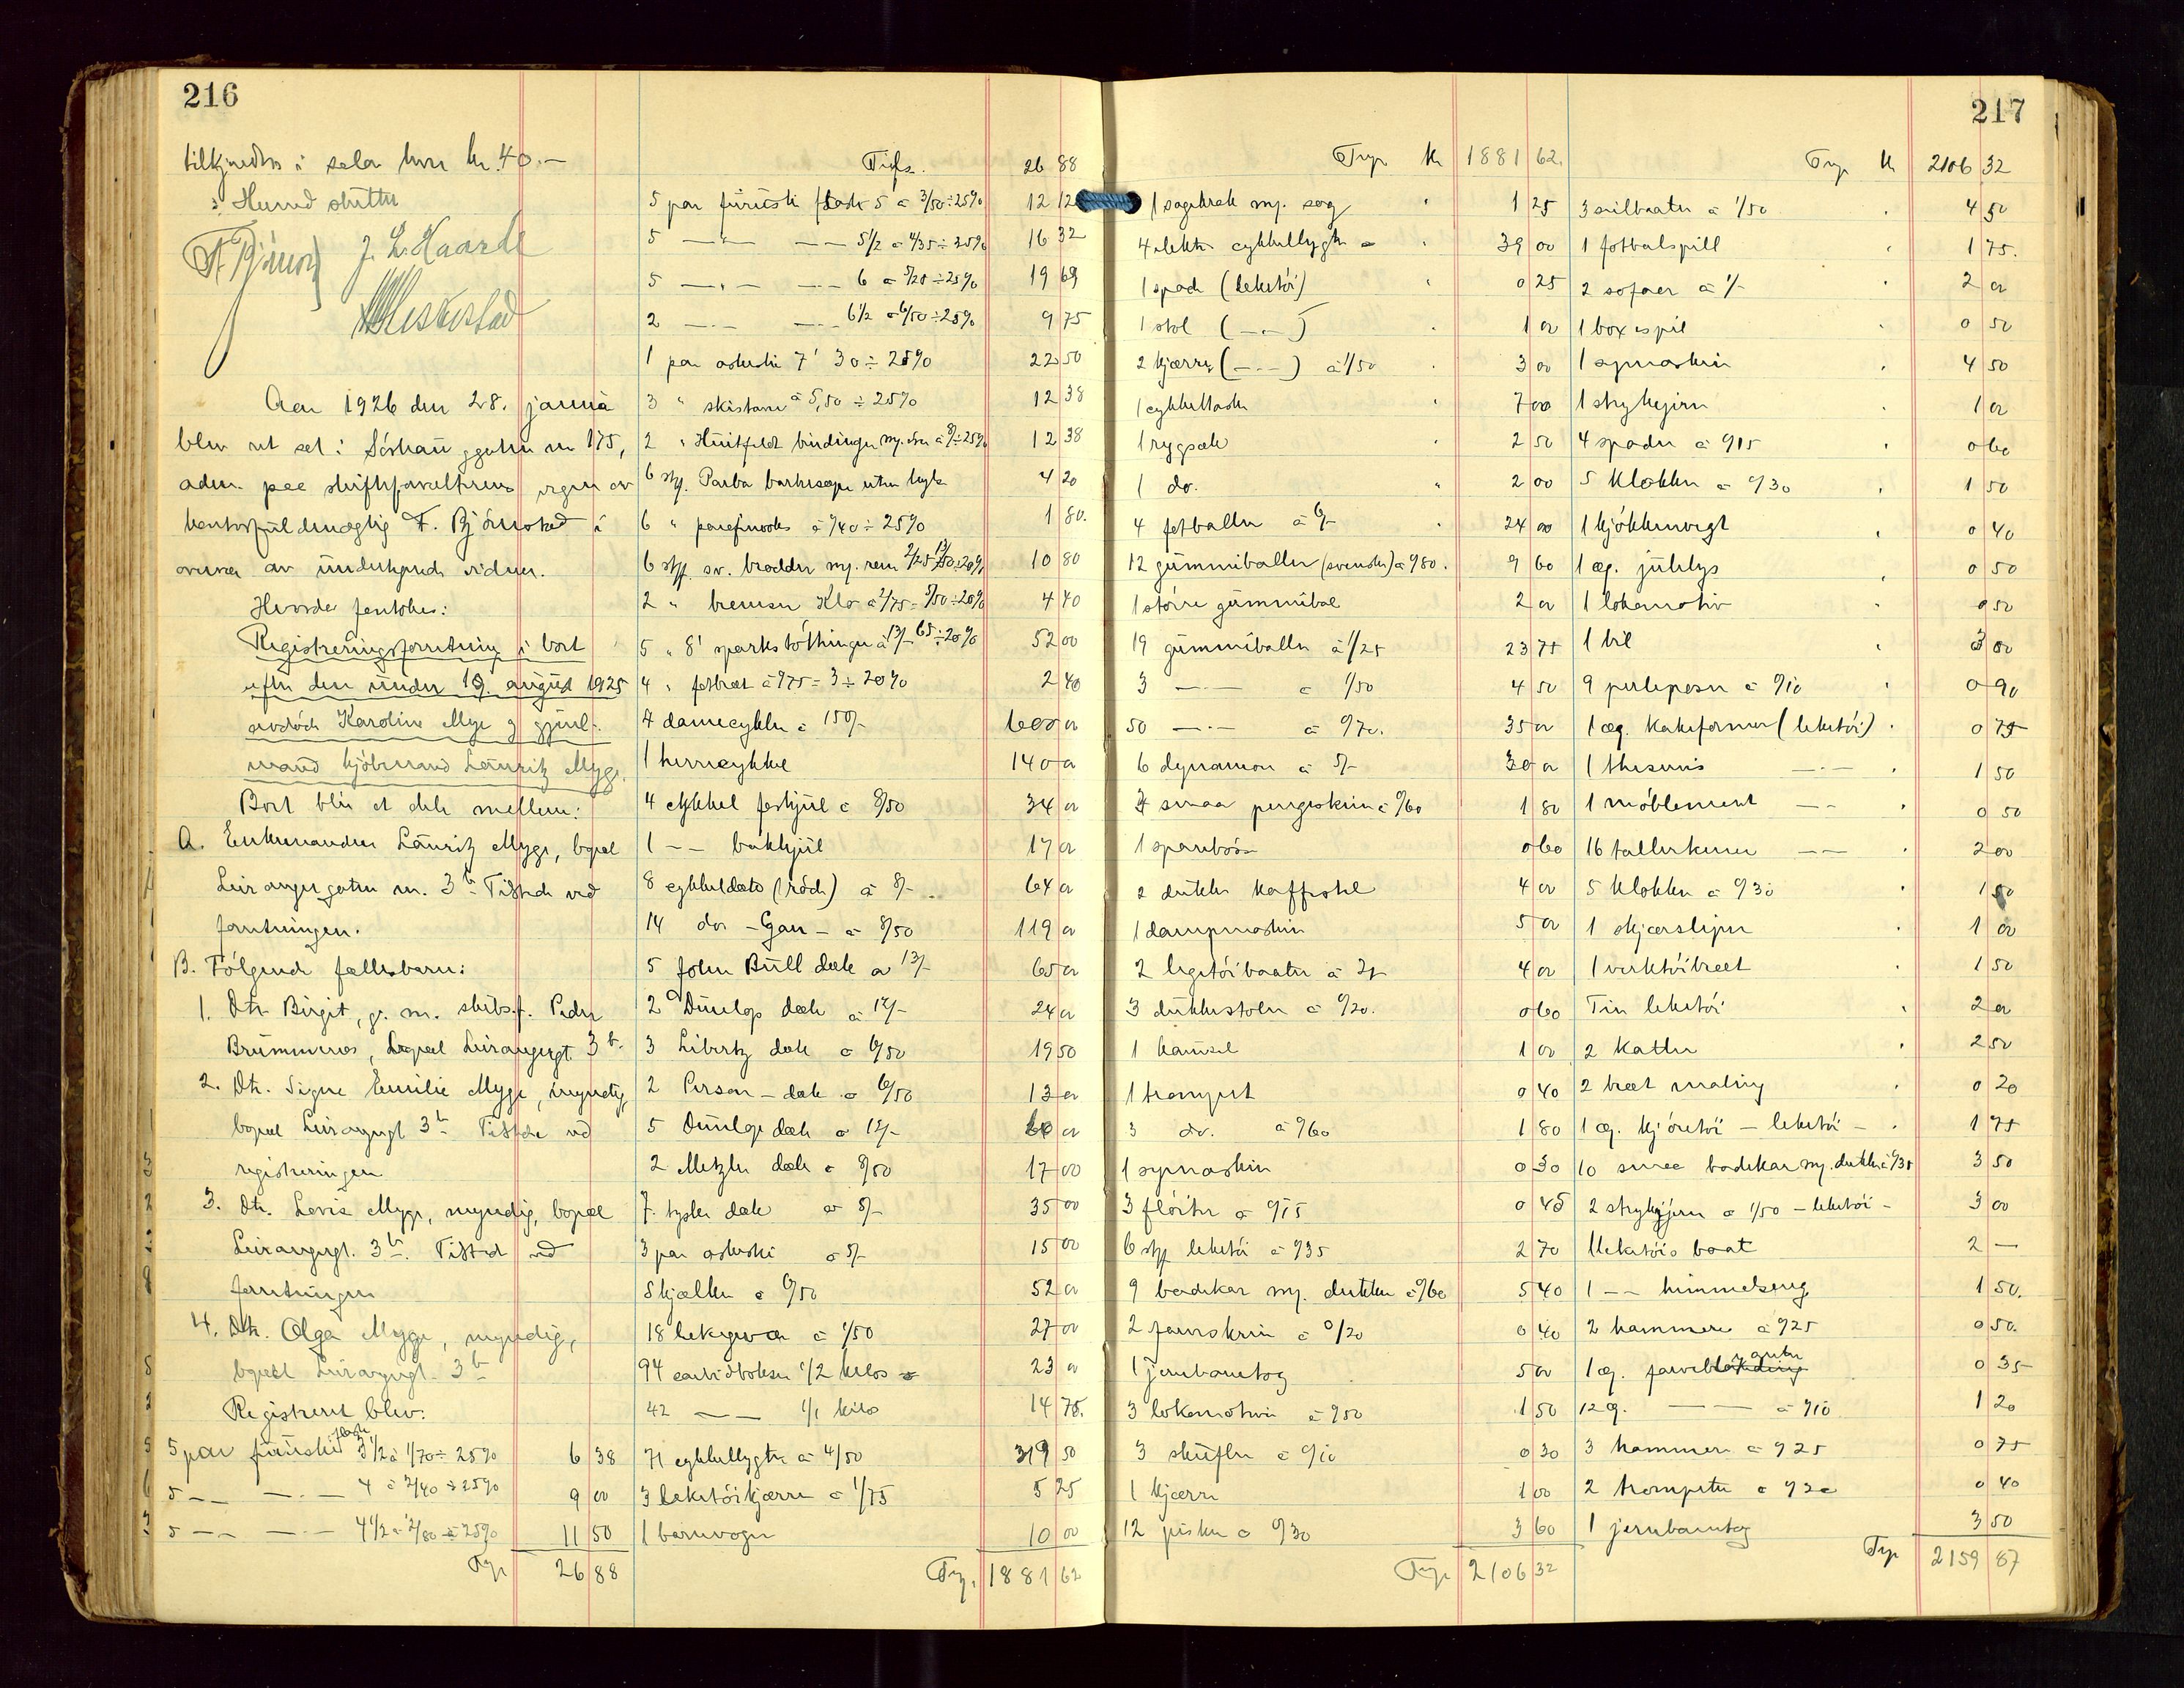 216
tilkjendtes i salær hver kr. 40.-
: Hermed sluttet
J. L. Haarde
Aar 1926 den 28. januar
blev ret sat i Sörhauggaten nr 175,
adm. paa skifteforvalterens vegne av
kontorfuldmægtig F. Björnstad i
overvær av undertegnede vidner.
Hvorda foretokes:
Registreringsforretning i boet
efter den under 19. august 1925
avdöde Karoline Myge og gjenl.
mand kjöbmand Lauritz Myge.
Boet blir at dele mellem:
A. Enkemanden Lauritz Myge, bopæl
Leirangergaten nr. 3b Tilstede ved
forretningen.
B. Fölgende fællesbarn:
1. Dtr. Birgit, g. m. skibsf. Peder
Brummenæs, bopæl Leirangergt. 3b.
2. Dtr. Signe Emilie Myge, myndig,
bopæl Leirangergt 3b Tilstede ved
registreringen
3. Dtr. Lovis Myge, myndig, bopæl
Leirangergt. 3b. Tilstede ved
forretningen
4. Dtr. Olga Myge, myndig,
bopæl Leirangergt. 3b
Registrert blev:
5 par furuski flade 3 1/2 à 1/70 ÷ 25% 6 38
5 -"- -"- 4 à 2/40 ÷ 25% 9 00
5 -"- -"- 4 1/2 à 2/80 ÷ 25% 11 50
Trp 26 88
Trfs. 26 88
5 par furuski flade 5 à 3/50 ÷ 25% 12 12
5 -"- -"- 5 1/2 à 4/35 ÷ 25% 16 32
5 -"- -"- 6 à 5/25 ÷ 25% 19 69
2 -"- -"- 6 1/2 à 6/50 ÷ 25% 9 75
1 par askeski 7' 30 ÷ 25% 22 50
3 " skistave à 5,50 ÷ 25% 12 38
2 " Huitfeldt bindinger m. à 8/- ÷ 25% 12 38
6 stk. Barba barbersæpe uten hylse 4 20
6 " parafinvoks à 0/40 ÷ 25% 1 80.
6 stk. sv. brodder m. rem 2/25 ÷ 20% 10 80
2 " bremser Klo à 2/75 = 5/50 ÷ 20% 4 40
5 " 8' sparkstöttinger à 13/- 65 ÷ 20% 52 00
4 " fotbræt à 0/75 = 3 ÷ 20% 2 40
4 damecykler à 150/- 600 00
1 herrecykkel 140 00
4 cykkel forhjul à 8/50 34 00
1 -"- bakhjul 17 00
8 cykkeldæk (röde) à 8/- 64 00
14 do - Gau - à 8/50 119 00
5 John Bull dæk a 13/- 65 00
2 Dunlop dæk à 12/- 24 00
3 Liberty dæk à 6/50 19 50
2 Person - dæk à 6/50 13 00
5 Dunlop dæk à 12/- 60 00
2 Metzler dæk à 8/50 17 00
7 tyske dæk à 5/- 35 00
3 par askeski à 5/- 15 00
8 kjælker à 6/50 52 00
18 lekevogner à 1/50 27 00
94 carbidbokser 1/2 kilos 23 00
42 -"- 1/1 kilo 14 75.
71 cykkellygter à 4/50 319 50
3 leketöikjærrer à 1/75 5 25
1 barnevogn 10 00
Trp. 1881 62
217
Trp kr 1881 62.
1 sagekrak m. sag 1 25
4 elektr. cykkellygter 39 00
1 spade (leketöi) 0 25
1 stol (-"-) 1 00
2 kjærrer (-"-) à 1/50 3 00
1 cykkeltaske 7 00
1 rygsæk 2 50
1 do. 2 00
4 fotballer à 6/- 24 00
12 gummiballer (svenske) à 0/80. 9 60
1 större gummibal 2 00
19 gummiballer à 1/25 23 75
3 -"- à 1/50 4 50
50 -"- à 0/70. 35 00
6 dynamoer à 5/- 30 00
3 smaa pengeskrin à 0/60 1 80
1 sparebösse 0 60
2 dukke kaffestel 4 00
1 dampmaskin 5 00
2 legetöibaater à 2/- 4 00
3 dukkestoler à 0/20. 0 60
1 karusel 1 00
1 trompet 0 40
3 do. à 0/60 1 80
1 symaskin 0 30
3 flöiter à 0/15 0 45
6 stk leketöi à 0/35 2 70
9 badekar m. dukker à 0/60 5 40
2 farveskrin à 0/20 0 40
1 jernbanetog 5 00
3 lokomotiver à 0/50 1 50
3 skufler à 0/10 0 30
1 kjærre 1 00
12 pisker à 0/30 3 60
Trp 2106 32
Trp kr 2106 32
3 seilbaater à 1/50 4 50
1 fotbalspill 1 75.
2 sofaer à 1/- 2 00
1 boxespil 0 50
1 symaskin 4 50
1 strykejern 1 00
4 spader à 0/15 0 60
5 klokker à 0/30 1 50
1 kjökkenvegt 0 40
1 æs. julelys 0 50
1 lokomotiv 0 50
1 bil 3 00
9 perleposer à 0/10 0 90
1 æs. kakeformer (leketöi). 0 75
1 theservis -"- 1 50
1 möblement -"- 0 50
16 tallerkener -"- 2 00
5 klokker à 0/30 1 50
1 skjærsliper 1 00
1 verktöibræt 1 50
Tin leketöi 2 00
2 katter 2 50
2 bræt maling 0 20
1 æs. kjöretöi - leketöi - 1 75
10 smaa badekar m. dukke à 0/35 3 50
2 strykejern à 1/50 - leketöi - 3 00
1 leketöis baat 2 -
1 -"- himmelseng 1 50.
2 hammere à 0/25 0 50.
1 æs. 0 35
12 æ. -"- à 0/10 1 20
3 hammere à 0/25 0 75
2 trompeter à 0/20 0 40
1 jernbanetog 3 50
Trp 2159 87